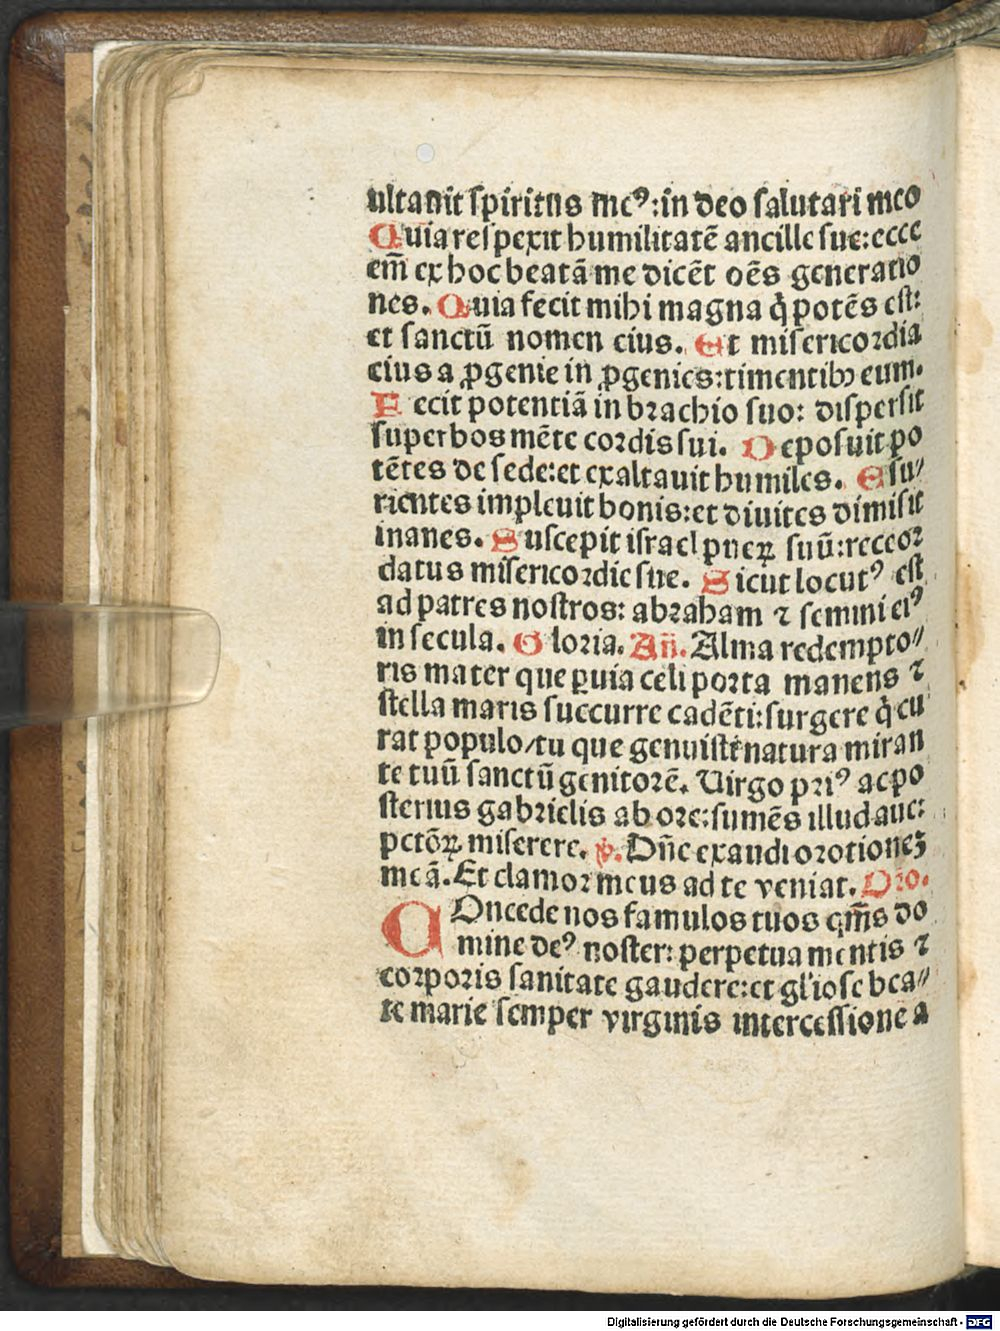 ultauit spiritus meꝰ:in deo salutari meo
Quia respexit humilitatē ancille sue:ecce
em̄ ex hoc beatā me dicēt oēs generatio
nes. Quia fecit mihi magna q̇ potēs est:
et sanctū nomen eius. Et misericordia
eius a ꝓgenie in ꝓgenies:timentibꝫ eum.
Fecit potentiā in brachio suo: dispersit
superbos mēte cordis sui. Deposuit po
tētes de sede:et exaltauit humiles. Esu⸗
rientes impleuit bonis:et diuites dimisit
inanes. Suscepit israel pueꝝ suū:recor
datus misericordie sue. Sicut locutꝰ est
ad patres nostros: abraham ⁊ semini eiꝰ
in secula. Gloria. Añ. Alma redempto⸗
ris mater que ꝑuia celi porta manens ⁊
stella maris succurre cadēti:surgere q̇ cu
rat populo/tu que genuisti natura miran
te tuū sanctū genitorē. Uirgo priꝰ ac po
sterius gabrielis ab ore:sumēs illud aue:
pctōꝝ miserere. ꝟ. Dñe exaudi orotioneꝫ
meā. Et clamor meus ad te veniat. Oro.
COncede nos famulos tuos qm̄s do
mine deꝰ noster: perpetua mentis ⁊
corporis sanitate gaudere:et gl̓iose bea⸗
te marie semper virginis intercessione a
Digitalisierung gefördert durch die Deutsche Forschungsgemeinschaft - DFG